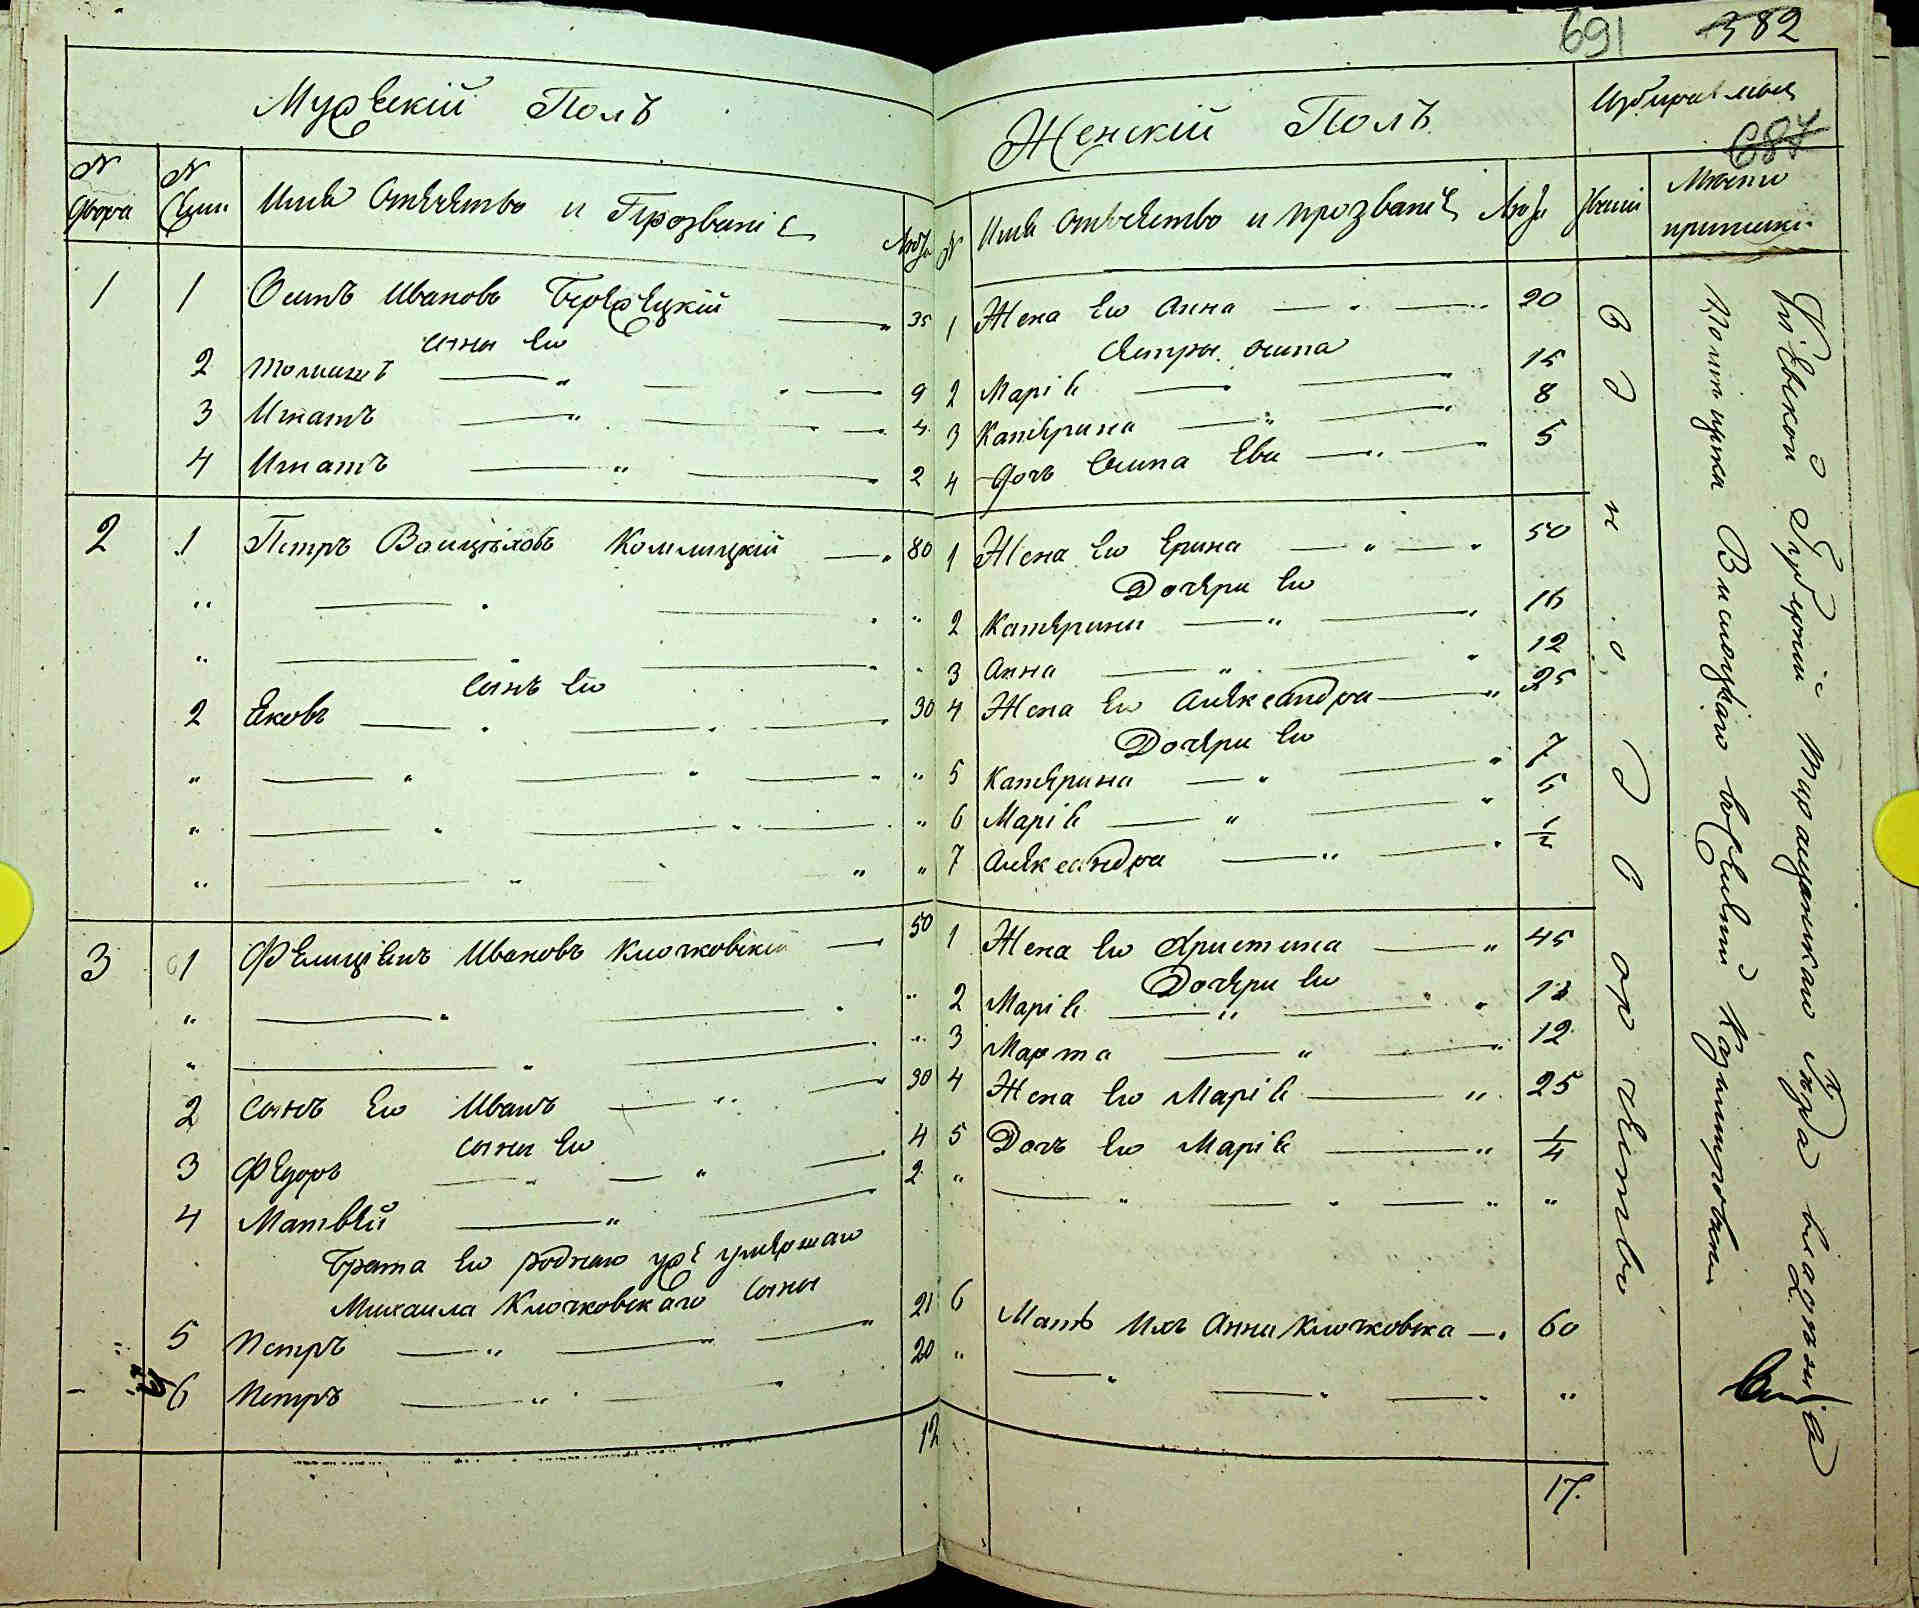 691 382
Мужескій Полъ
Женскій Полъ
687
№ Двора
№
Имя Отечество и Прозваніе
Лѣта
№
Имя Отечество и прозваніе
Лѣта
Званіе
Место приписки
1 1 Осипъ Ивановъ 35
1 Жена Его Анна 20
сыны Его
Сестры Осипа
2 9
2 Марія 15
3 Игнатъ 4
3 Катерина 8
4 Игнатъ 2
4 Дочъ Осипа Ева 5
2 1 Петръ Войцѣховъ 80
1 Жена Его Ерина 50
Дочери Его
2 Катерина 16
3 Анна 12
сынъ Его
2 Яковъ 30
4 Жена Его Александра 25
Дочери Его
5 Катерина 7
6 Марія 5
7 Александра 1/2
3 1 Фелиціянъ Ивановъ Клочковскій 50
1 Жена Его Христина 45
Дочери Его
2 Марія 13
3 Марта 12
2 сынъ Его Иванъ 30
4 Жена Его Марія 25
сыны Его
3 Федоръ 4
5 Дочъ Его Марія 1/4
4 Матвѣй 2
Брата Его роднаго уже умершаго
Михаила Клочковскаго сыны
5 Петръ 21
6 Мать Ихъ Анна Клочковска 60
6 Петръ 20
12
17.
Однодворчество
Помѣщика
Кіевской Губерніи Таращанскаго владѣнія